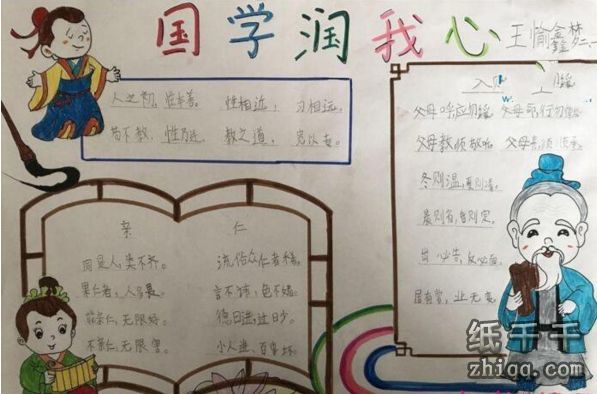 国学润我心
王愉鑫
人之初，性本善。 性相近， 习相远。
苟不教，性乃迁。 教之道，贵以专。
父母呼应勿 父母 行勿
父母教须敬听 父母 须
冬则温，夏则清，
晨则省，昏则定，
出 必告，反必面，
居有常，业无变。
亲 仁
同是人，类不齐。 流俗众仁者希。
果仁者，人 畏。 言不讳，色不媚。
能亲仁，无限好。 德日进，过日少。
不亲仁，无限害。 小人进，百事坏。
纸千千
zhiqq.com